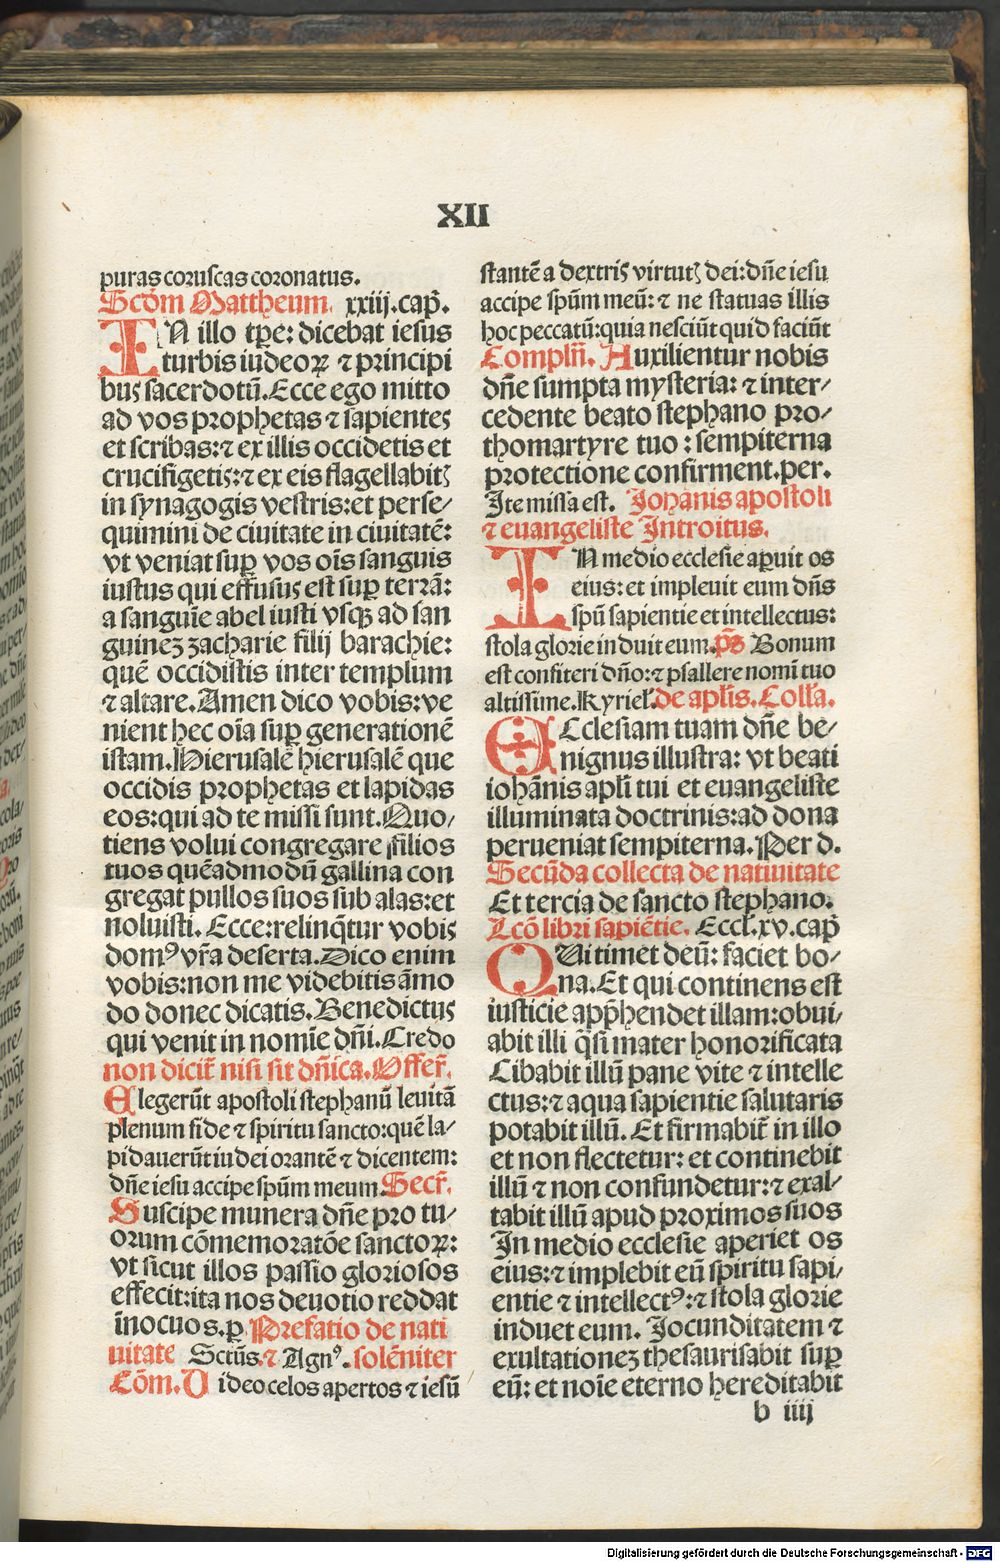 XII
puras coruscas coronatus.
Scḋm Mattheum. xxiij.cap̄.
IN illo tꝑe: dicebat iesus
turbis iudeoꝝ ⁊ principi
bus sacerdotū. Ecce ego mitto
ad vos prophetas ⁊ sapientes
et scribas:⁊ ex illis occidetis et
crucifigetis:⁊ ex eis flagellabitꝭ
in synagogis vestris:et perse/
quimini de ciuitate in ciuitatē:
vt veniat suꝑ vos oīs sanguis
iustus qui effusus est suꝑ terrā:
a sanguīe abel iusti vsqꝫ ad san
guineꝫ zacharie filij barachie:
quē occidistis inter templum
⁊ altare. Amen dico vobis: ve
nient hec oīa suꝑ generationē
istam. Hierusalē hierusalē que
occidis prophetas et lapidas
eos:qui ad te missi sunt. Quo/
tiens volui congregare filios
tuos quēadmodū gallina con
gregat pullos suos sub alas: et
noluisti. Ecce: relinq̄tur vobis
domꝰ vr̄a deserta. Dico enim
vobis: non me videbitis āmo
do donec dicatis. Benedictus
qui venit in nomīe dn̄i. Credo
non dicit̄ nisi sit dn̄ica. Offer̄.
Elegerūt apostoli stephanū leuitā
plenum fide ⁊ spiritu sancto:quē la/
pidauerūt iudei orantē ⁊ dicentem:
dn̄e iesu accipe spūm meum. Secr̄.
Suscipe munera dn̄e pro tu/
orum cōmemoratōe sanctoꝝ:
vt sicut illos passio gloriosos
effecit:ita nos deuotio reddat
īnocuos. ꝑ. Prefatio de nati
uitate Sctūs.⁊ Agnꝰ. solēniter
Cōm. Video celos apertos ⁊ iesū
stantē a dextris virtutꝭ dei: dn̄e iesu
accipe spūm meū: ⁊ ne statuas illis
hoc peccatū: quia nesciūt quid faciūt
Complīn. Auxilientur nobis
dn̄e sumpta mysteria: ⁊ inter/
cedente beato stephano pro/
thomartyre tuo : sempiterna
protectione confirment. per.
Ite missa est. Johānis apostoli
⁊ euangeliste Introitus.
IN medio ecclesie aꝑuit os
eius: et impleuit eum dn̄s
spū sapientie et intellectus:
stola glorie induit eum. p̄s Bonum
est confiteri dn̄o: ⁊ psallere nomī tuo
altissime. Kyriel. de apl̄is. Coll̄a.
ECclesiam tuam dn̄e be-
nignus illustra: vt beati
iohānis apl̄i tui et euangeliste
illuminata doctrinis: ad dona
perueniat sempiterna. Per d.
Secūda collecta de natiuitate
Et tercia de sancto stephano.
Lcō libri sapiētie. Eccl. xv. cap̄
QUi timet deū: faciet bo-
na. Et qui continens est
iusticie app̄hendet illam: obui/
abit illi q̄si mater honorificata
Cibabit illū pane vite ⁊ intelle
ctus: ⁊ aqua sapientie salutaris
potabit illū. Et firmabit̄ in illo
et non flectetur: et continebit
illū ⁊ non confundetur: ⁊ exal-
tabit illū apud proximos suos
In medio ecclesie aperiet os
eius: ⁊ implebit eū spiritu sapi-
entie ⁊ intellectꝰ: ⁊ stola glorie
induet eum. Jocunditatem ⁊
exultationeꝫ thesaurisabit suꝑ
eū: et noīe eterno hereditabit
b iiij
Digitalisierung gefördert durch die Deutsche Forschungsgemeinschaft - DFG